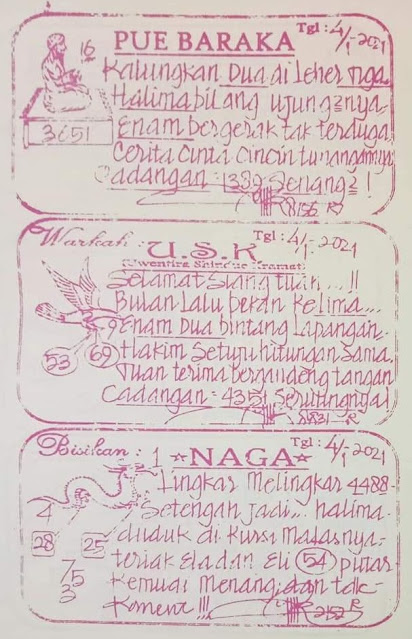 Tgl: 4/1-2021
PUE BARAKA
16
3651
Kalungkan Dua di Leher nga
Halima bilang ujungnya
Enam bergerak tak terduga
Cerita Cinta Cincin tunangannya
Cadangan = 1339 Senang2 !
Warkah : U.S.K Tgl: 4/1-2021
Selamat Siang tuan...!!
Bulan Lalu pekan Kelima...
Enam Dua bintang Lapangan
53 69
Hakim Setuju hitungan Sama
Tuan terima bergandeng tangan
Cadangan = 4351
Bisikan : 1 ☆NAGA☆ Tgl: 4/1-2021
Lingkar Melingkar 4488
4
Setengah jadi... halima
28 25
duduk di Kursi malasnya
teriak Ela dan Eli 54 putar
75
3
Kemudi Menang dan tak
Komena !!!